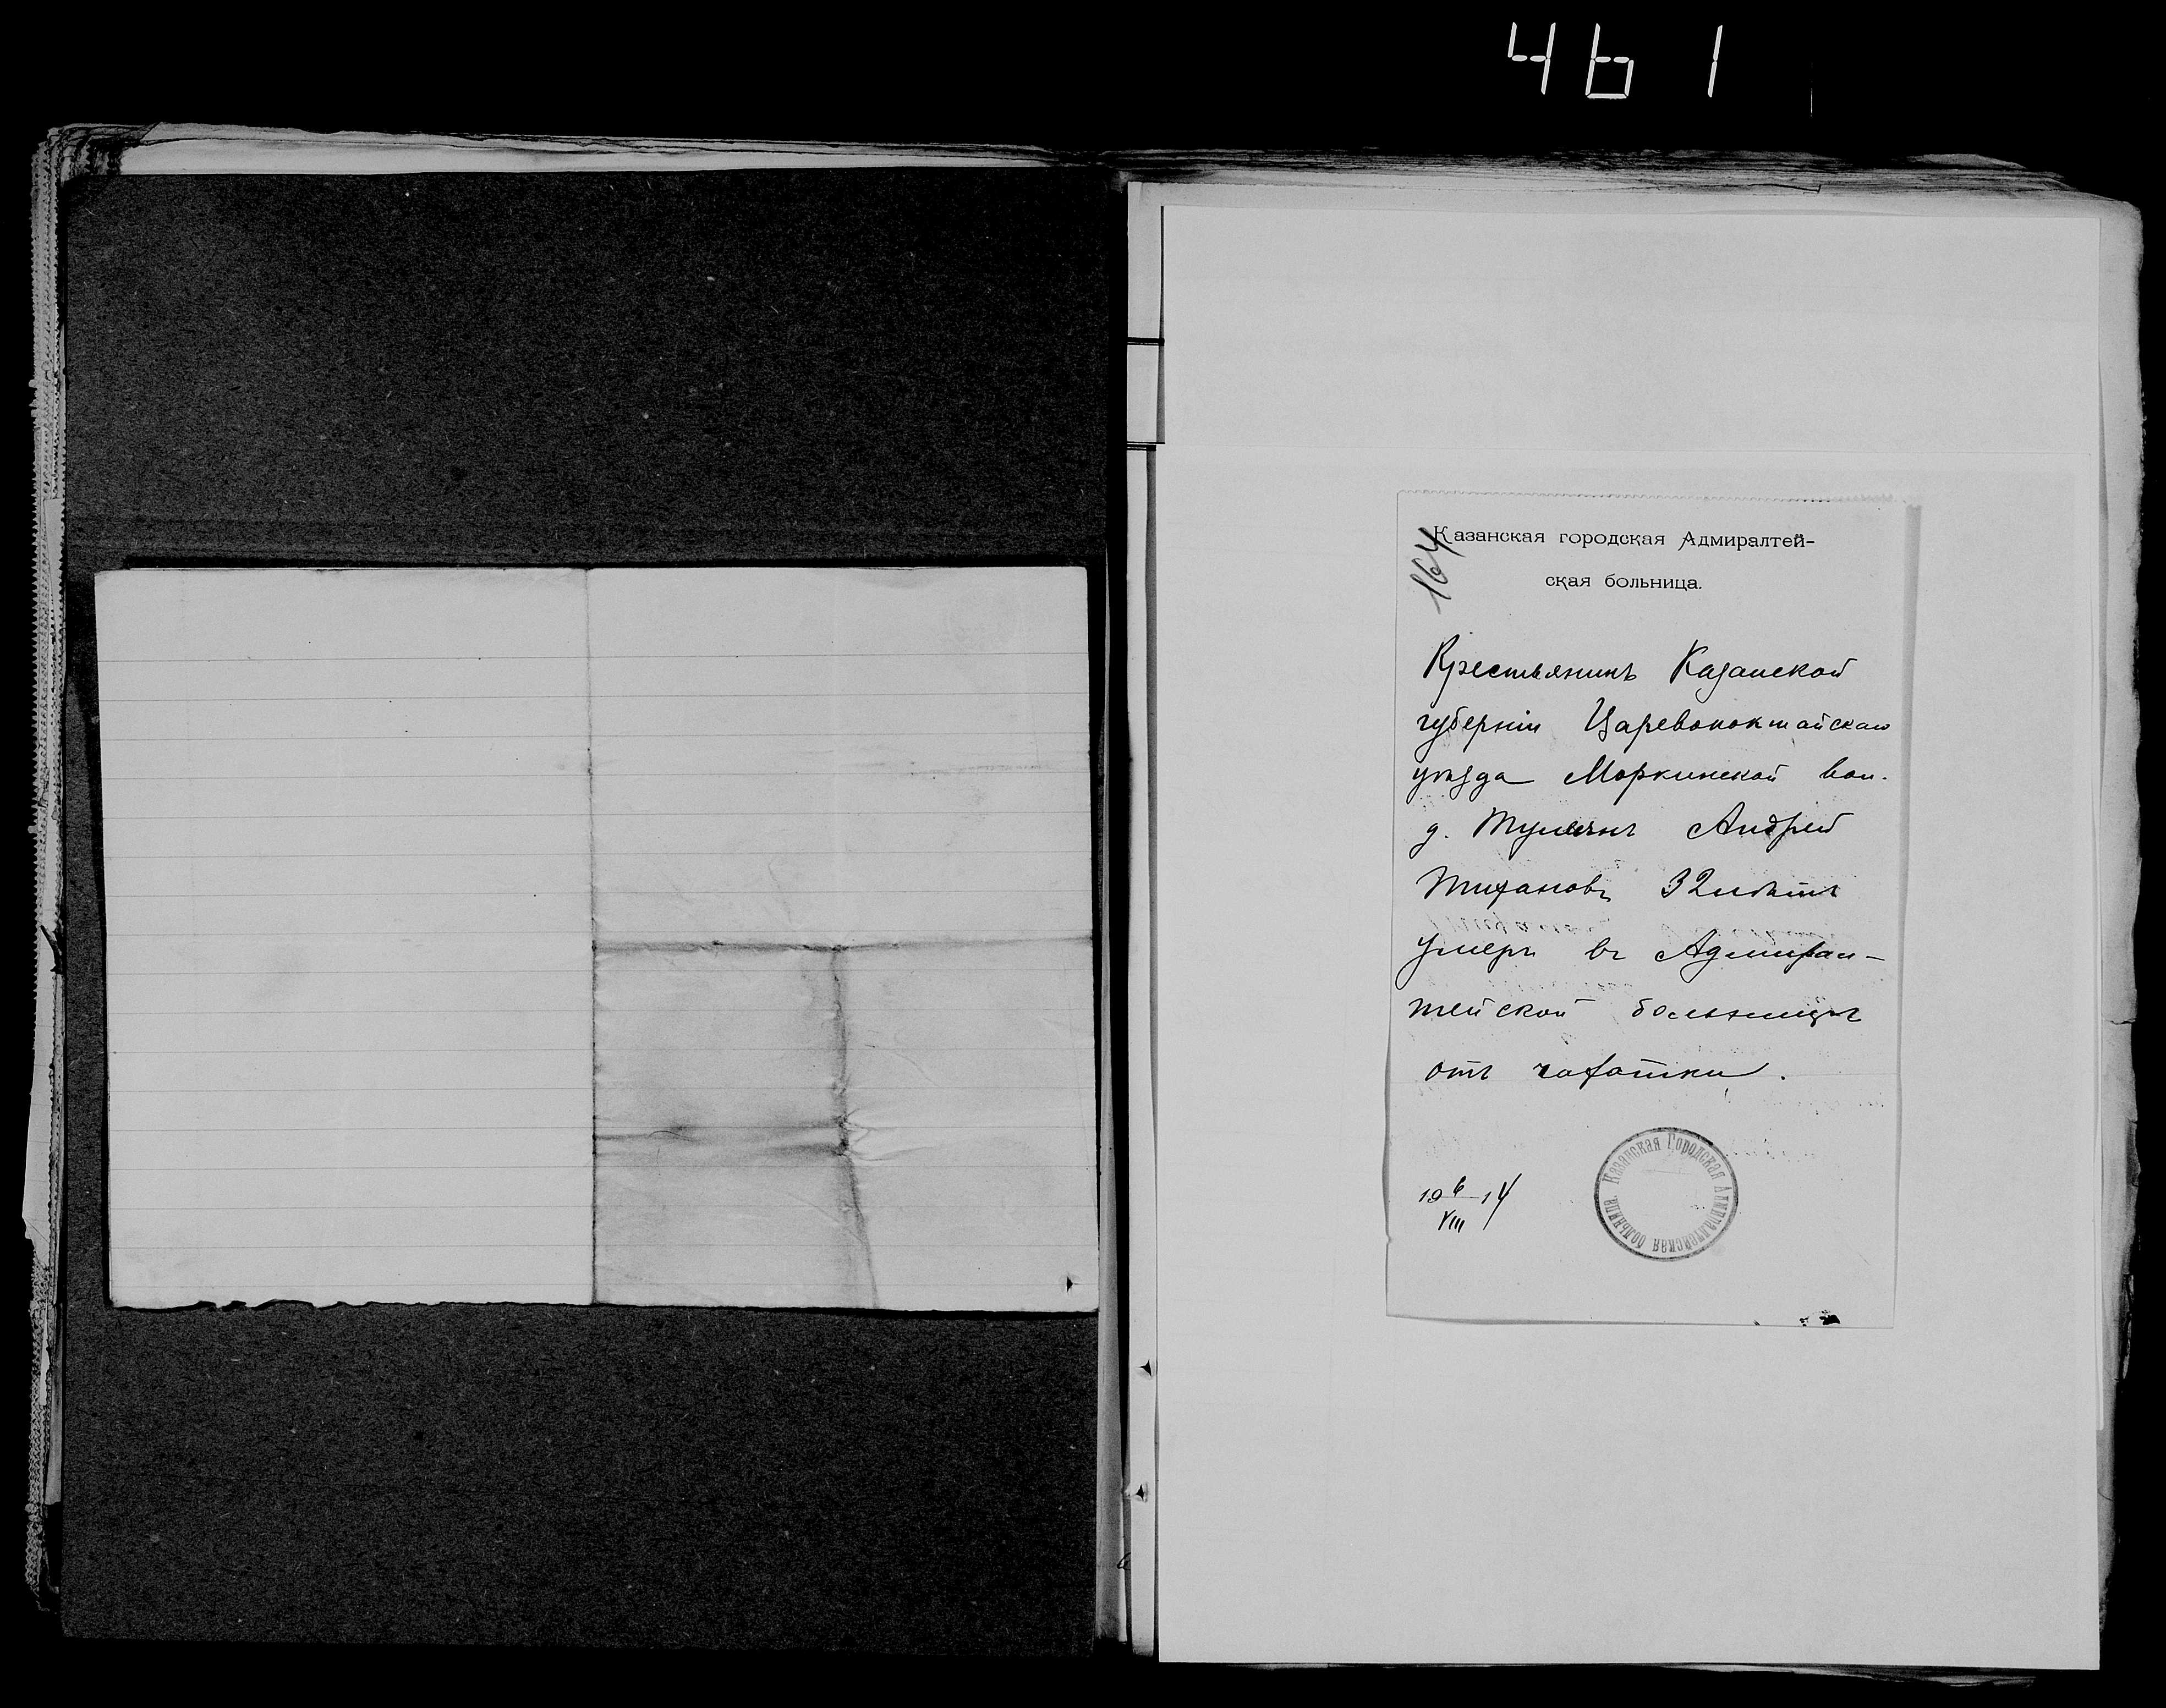 461
164
Казанская городская Адмиралтей-
ская больница.
Крестьянинъ Казанской
губерніи Царевококшайскаго
уѣзда Моркинской вол.
д. Андрей
Тифановъ 32 лѣтъ
умеръ въ Адмирал-
тейской больницѣ
отъ чахотки.
19 6/VIII 14
Казанская Городская Адмиралтейская больница